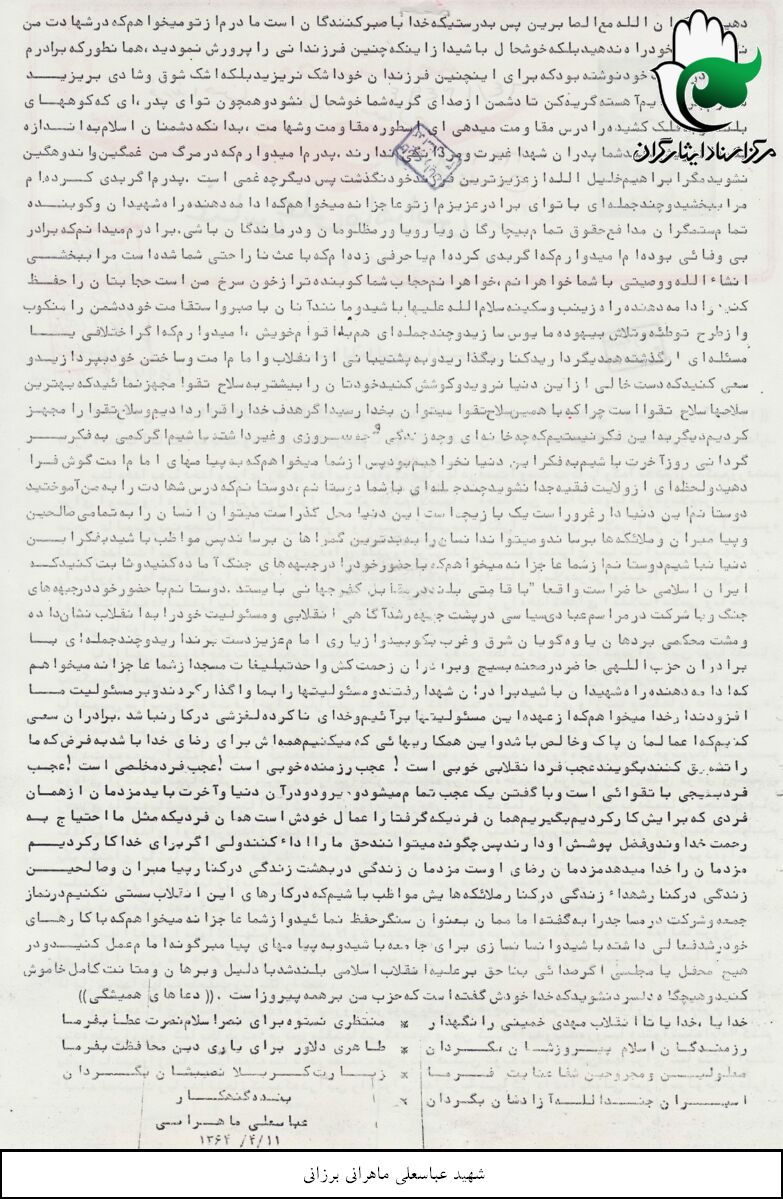 ان الله مع الصابرین پس بدرستیکه خدا با صبرکنندگان است مادرم از تو میخواهم که در شهادت من
خود راه ندهید بلکه خوشحال باشید از اینکه چنین فرزندانی را پرورش نمودید، همانطور که برادرم
در خود نوشته بود که برای اینچنین فرزندان خود اشک نریزید بلکه اشک شوق و شادی بریزید
آهسته گریه کن تا دشمن از صدای گریه شما خوشحال نشود و همچون تو ای پدر، ای که کوههای
فلک کشیده را درس مقاومت میدهی ای اسطوره مقاومت و شهامت، بدانکه دشمنان اسلام به اندازه
شما پدران شهدا غیرت و مردانگی ندارند. پدرم امیدوارم که در مرگ من غمگین و اندوهگین
نشوید مگر ابراهیم خلیل الله از عزیزترین خود نگذشت پس دیگر چه غمی است. پدرم اگر بدی کرده ام
مرا ببخشید و چند جمله ای با تو ای برادر عزیزم از تو عاجزانه میخواهم که ادامه دهنده راه شهیدان و کوبنده
تمام ستمگران مدافع حقوق تمام بیچارگان و یار و یاور مظلومان و درماندگان باشی. برادرم میدانم که برادر
بی وفائی بوده ام امیدوارم که اگر بدی کرده ام یا حرفی زده ام که باعث ناراحتی شما شده است مرا ببخشی
انشاءالله و وصیتی با شما خواهرانم، خواهرانم حجاب شما کوبنده تر از خون سرخ من است حجابتان را حفظ
کنید ادامه دهنده راه زینب و سکینه سلام الله علیها باشید و مانند آنان با صبر و استقامت خود دشمن را منکوب
و از طرح توطئه و تلاش بیهوده مایوس سازید و چند جمله ای هم با اقوام خویش، امیدوارم که اگر اختلافی یا
مسئله ای از گذشته همدیگر دارید کنار بگذارید و به پشتیبانی از انقلاب و امام امت و ساختن خود بپردازید و
سعی کنید که دست خالی از این دنیا نروید و کوشش کنید خودتان را بیشتر به سلاح تقوا مجهز نمائید که بهترین
سلاحها سلاح تقوا است چرا که با همین سلاح تقوا میتوان بخدا رسید اگر هدف خدا را قرار دادیم و سلاح تقوا را مجهز
کردیم دیگر به این فکر نیستیم که چه خانه ای و چه زندگی و چه روزی و غیر داشته باشیم اگر کمی به فکر سر
گردانی روز آخرت باشیم به فکر این دنیا نخواهیم بود پس از شما میخواهم که به پیامهای امام امت گوش فرا
دهید و لحظه ای از ولایت فقیه جدا نشوید چند جمله ای با شما دوستانم، دوستانم که درس شهادت را به من آموختید
دوستانم این دنیا دار غرور است یک بازیچه است این دنیا محل گذر است میتوان انسان را به تمامی صالحین
و پیامبران و ملائکه ها برساند و میتواند انسان را به بدترین گمراهان برساند پس مواظب باشید به فکر این
دنیا نباشیم دوستانم از شما عاجزانه میخواهم که با حضور خود را در جبهه های جنگ آماده کنید و ثابت کنید که
ایران اسلامی حاضر است واقعا" با قامتی بلند در مقابل کفر جهانی بایستد. دوستانم با حضور خود در جبهه های
جنگ و با شرکت در مراسم عبادی سیاسی در پشت جبهه رشد آگاهی انقلابی و مسئولیت خود را به انقلاب نشان داده
و مشت محکمی بر دهان یاوه گویان شرق و غرب بکوبید و از یاری امام عزیز دست برندارید و چند جمله ای با
برادران حزب اللهی حاضر در صحنه بسیج و برادران زحمت کش واحد تبلیغات مسجد از شما عاجزانه میخواهم
که ادامه دهنده راه شهیدان باشید برادران شهدا رفتند و مسئولیتها را بما واگذار کردند و بر مسئولیت ما
افزودند از خدا میخواهم که از عهده این مسئولیتها برآئیم و خدای ناکرده لغزشی در کار نباشد. برادران سعی
کنیم که اعمالمان پاک و خالص باشد و این همکاریهائی که میکنیم همه اش برای رضای خدا باشد به فرض که ما
را تشویق کنند بگویند عجب فرد انقلابی خوبی است! عجب رزمنده خوبی است! عجب فرد مخلصی است! عجب
فرد بسیجی با تقوائی است و با گفتن یک عجب تمام میشود و میرود در آن دنیا و آخرت باید مزدمان از همان
فردی که برایش کار کردیم بگیریم همان فردیکه گرفتار اعمال خودش است همان فردیکه مثل ما احتیاج به
رحمت خداوند و فضل پوشش او دارند پس چگونه میتوانند حق ما را اداء کنند ولی اگر برای خدا کار کردیم
مزدمان را خدا میدهد مزدمان رضای اوست مزدمان زندگی در بهشت زندگی در کنار پیامبران و صالحین
زندگی در کنار شهداء زندگی در کنار ملائکه هایش مواظب باشیم که در کارهای این انقلاب سستی نکنیم در نماز
جمعه و شرکت در مساجد را به گفته اماممان بعنوان سنگر حفظ نمائید و از شما عاجزانه میخواهم که با کارهای
خود رشد فعالی داشته باشید و انسانسازی برای جامعه باشید و به پیامهای پیامبرگونه امام عمل کنید و در
هیچ محفل یا مجلسی اگر صدائی بناحق بر علیه انقلاب اسلامی بلند شد با دلیل و برهان و متانت کامل خاموش
کنید و هیچگاه دلسرد نشوید که خدا خودش گفته است که حزب من بر همه پیروز است. ((دعاهای همیشگی))
خدایا، خدایا تا انقلاب مهدی خمینی را نگهدار * منتظری نستوه برای نصر اسلام نصرت عطا بفرما
رزمندگان اسلام پیروزشان بگردان * طاهری دلاور برای یاری دین محافظت بفرما
معلولین و مجروحین شفا عنایت فرما * زیارت کربلا نصیبشان بگردان
اسیران جندالله آزادشان بگردان * بنده گنهکار
عباسعلی ماهرانی
۱۳۶۴/۴/۱۱
مرکز اسناد ایثارگران
شهید عباسعلی ماهرانی برزانی